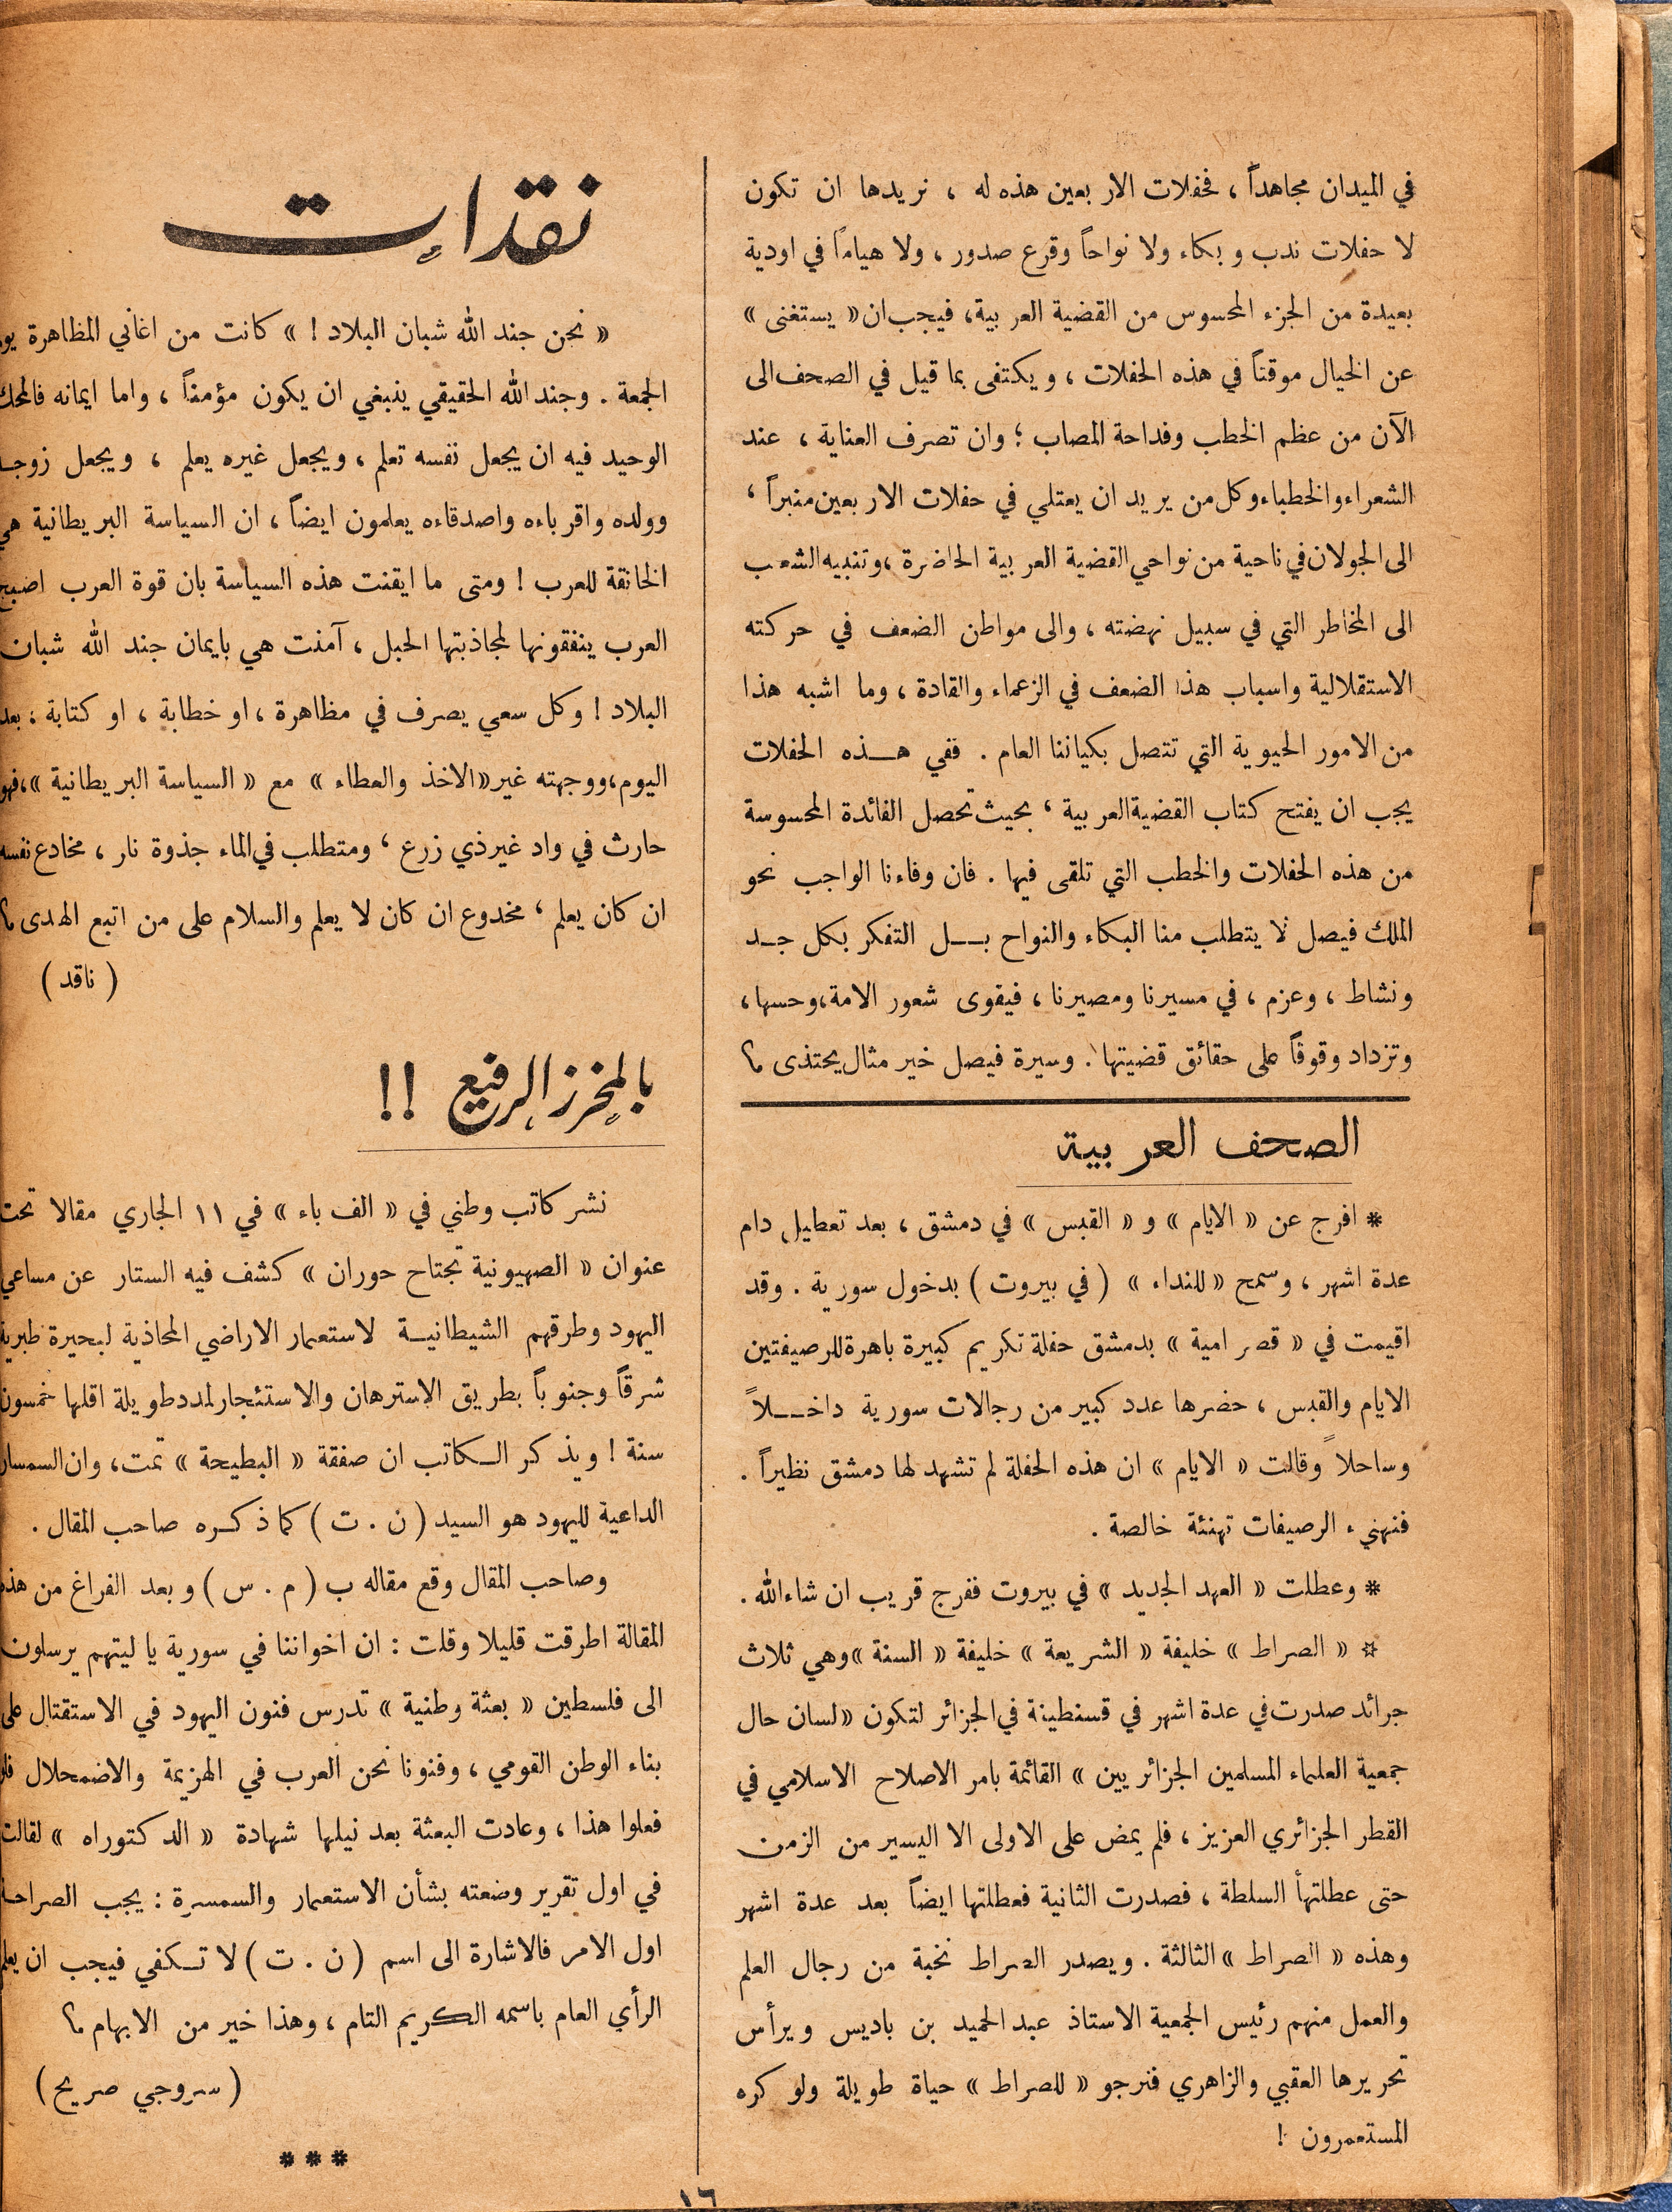 في الميدان مجاهداً ، فحفلات الاربعين هذه له ، نريدها ان تكون
لا حفلات ندب وبكاء ولا نواحاً وقرع صدور ، ولا هياماً في اودية
بعيدة من الجزء المحسوس من القضية العربية، فيجب ان « يستغنى »
عن الخيال موقتاً في هذه الحفلات ، ويكتفى بما قيل في الصحف الى
الآن من عظم الخطب وفداحة المصاب ؛ وان تصرف العناية ، عند
الشعراء والخطباء وكل من يريد ان يعتلي في حفلات الاربعين منبراً ،
الى الجولان في ناحية من نواحي القضية العربية الحاضرة ، وتنبيه الشعب
الى المخاطر التي في سبيل نهضته ، والى مواطن الضعف في حركته
الاستقلالية واسباب هذا الضعف في الزعماء والقادة ، وما اشبه هذا
من الامور الحيوية التي تتصل بكياننا العام . ففي هـذه الحفلات
يجب ان يفتح كتاب القضية العربية ، بحيث تحصل الفائدة المحسوسة
من هذه الحفلات والخطب التي تلقى فيها . فان وفاءنا الواجب نحو
الملك فيصل لا يتطلب منا البكاء والنواح بـل التفكر بكل جـد
ونشاط ، وعزم ، في مسيرنا ومصيرنا ، فيقوى شعور الامة، وحسها ،
وتزداد وقوفاً على حقائق قضيتها . وسيرة فيصل خير مثال يحتذى ؟
الصحف العربية
* افرج عن « الايام » و « القبس » في دمشق ، بعد تعطيل دام
عدة اشهر ، وسمح « للنداء » ( في بيروت ) بدخول سورية . وقد
اقيمت في « قصر امية » بدمشق حفلة تكريم كبيرة باهرة للرصيفتين
الايام والقبس ، حضرها عدد كبير من رجالات سورية داخـلاً
وساحلاً وقالت « الايام » ان هذه الحفلة لم تشهد لها دمشق نظيراً .
فنهنيء الرصيفات تهنئة خالصة .
* وعطلت « العهد الجديد » في بيروت ففرج قريب ان شاء الله .
☆ « الصراط » خليفة « الشريعة » خليفة « السنة » وهي ثلاث
جرائد صدرت في عدة اشهر في قسنطينة في الجزائر لتكون « لسان حال
جمعية العلماء المسلمين الجزائريين » القائمة بامر الاصلاح الاسلامي في
القطر الجزائري العزيز ، فلم يمض على الاولى الا اليسير من الزمن
حتى عطلتها السلطة ، فصدرت الثانية فعطلتها ايضاً بعد عدة اشهر
وهذه « الصراط » الثالثة . ويصدر الصراط نخبة من رجال العلم
والعمل منهم رئيس الجمعية الاستاذ عبد الحميد بن باديس ويرأس
تحريرها العقبي والزاهري فنرجو « للصراط » حياة طويلة ولو كره
المستعمرون !
نقدات
« نحن جند الله شبان البلاد ! » كانت من اغاني المظاهرة
الجمعة . وجند الله الحقيقي ينبغي ان يكون مؤمناً ، واما ايمانه فالمحك
الوحيد فيه ان يجعل نفسه تعلم ، ويجعل غيره يعلم ، ويجعل
وولده واقرباءه واصدقاءه يعلمون ايضاً ، ان السياسة البريطانية هي
الخانقة للعرب ! ومتى ما ايقنت هذه السياسة بان قوة العرب
العرب ينفقونها لمجاذبتها الحبل ، آمنت هي بايمان جند الله شبان
البلاد ! وكل سعي يصرف في مظاهرة ، او خطابة ، او كتابة ، بعد
اليوم، ووجهته غير « الاخذ والعطاء » مع « السياسة البريطانية »، فهو
حارث في واد غير ذي زرع ، ومتطلب في الماء جذوة نار ، مخادع نفسه
ان كان يعلم ، مخدوع ان كان لا يعلم والسلام على من اتبع الهدى ؟
( ناقد )
بالمخرز الرفيع !!
نشر كاتب وطني في « الف باء » في ١١ الجاري مقالا تحت
عنوان « الصهيونية تجتاح حوران » كشف فيه الستار عن مساعي
اليهود وطرقهم الشيطانيـة لاستعمار الاراضي المحاذية لبحيرة طبرية
شرقاً وجنوباً بطريق الاسترهان والاستئجار لمدد طويلة اقلها خمسون
سنة ! ويذكر الـكاتب ان صفقة « البطيحة » تمت، وان السمسار
الداعية لليهود هو السيد ( ن . ت ) كما ذكـره صاحب المقال .
وصاحب المقال وقع مقاله ب ( م . س ) وبعد الفراغ من هذه
المقالة اطرقت قليلا وقلت : ان اخواننا في سورية يا ليتهم يرسلون
الى فلسطين « بعثة وطنية » تدرس فنون اليهود في الاستقتال على
بناء الوطن القومي ، وفنونا نحن العرب في الهزيمة والاضمحلال
فعلوا هذا ، وعادت البعثة بعد نيلها شهادة « الدكتوراه » لقالت
في اول تقرير وضعته بشأن الاستعمار والسمسرة : يجب
اول الامر فالاشارة الى اسم ( ن . ت ) لا تـكفي فيجب ان يعلم
الرأي العام باسمه الكريم التام ، وهذا خير من الابهام ؟
( سروجي صريح )
* * *
١٦